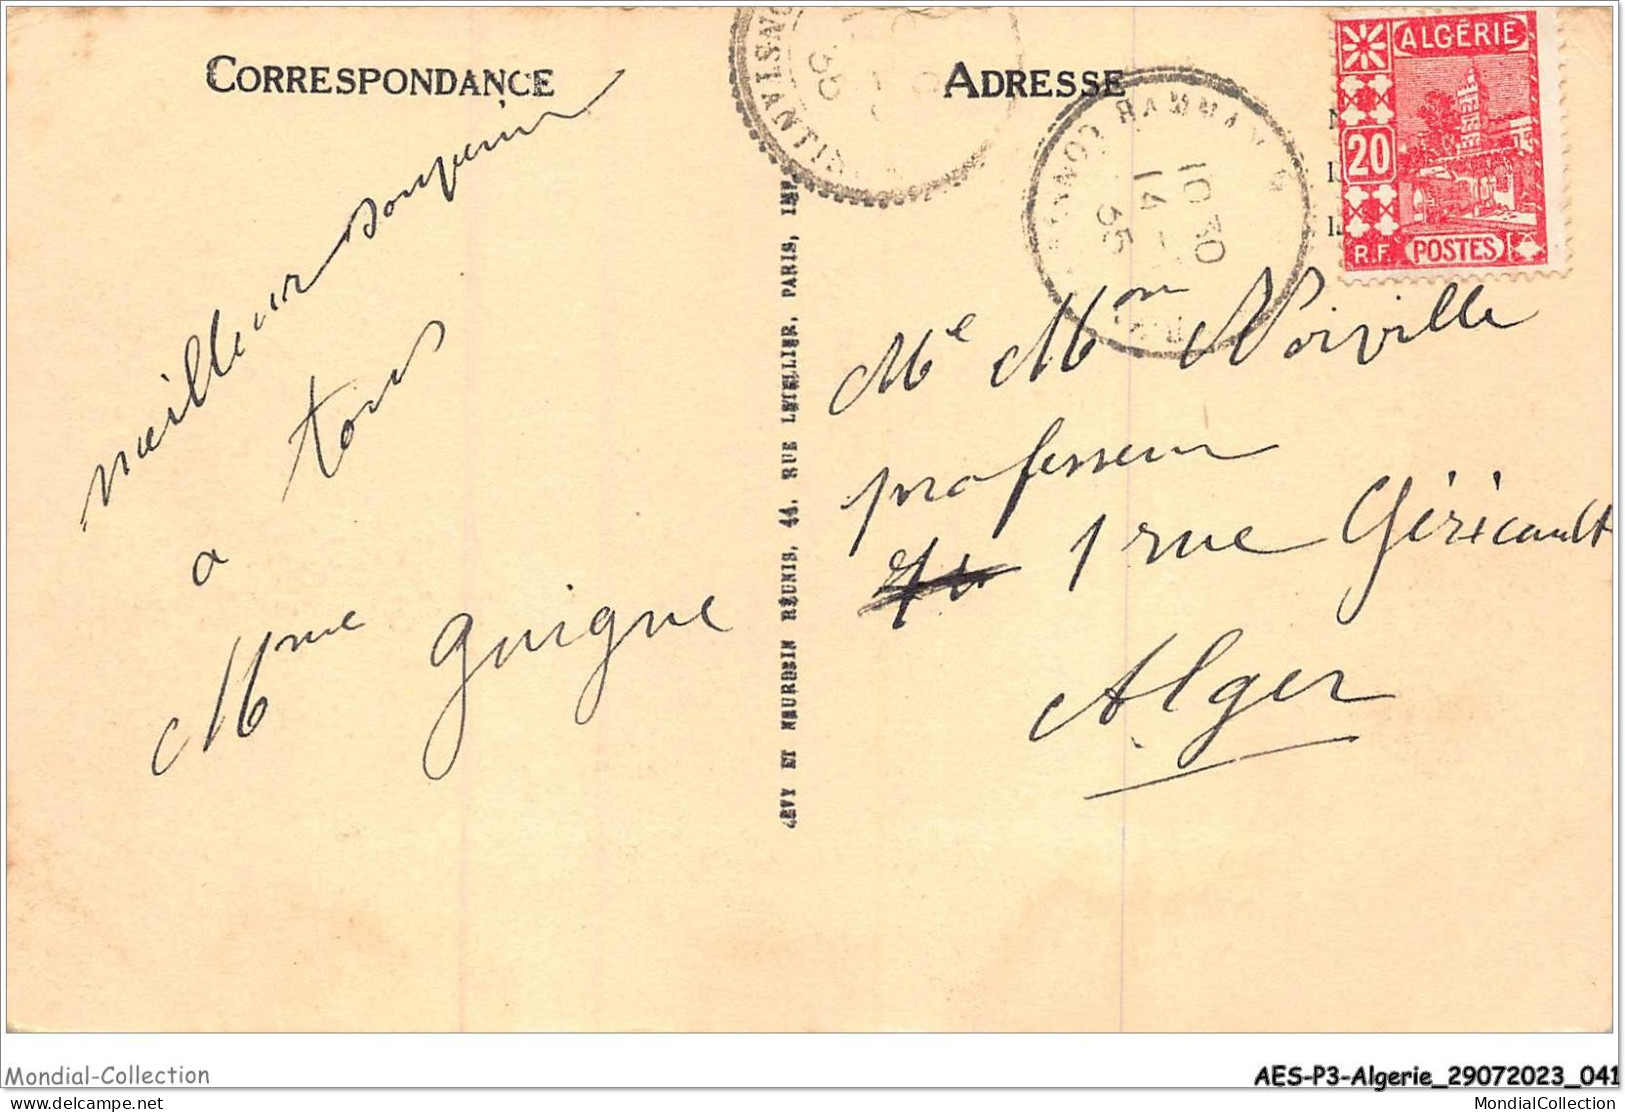 CORRESPONDANCE
meilleur souvenir
à
tous
Mme Guigue
LEVY ET NEURDEIN RÉUNIS, 44, RUE LETELLIER, PARIS, IMP.
ADRESSE
CONSTANTINE
HAMMAM
10 30
14
35
ALGÉRIE
20
R.F. POSTES
Me Mon Noiville
professeur
1 rue Géricault
Alger
Mondial-Collection
AES-P3-Algerie_29072023_041
delcampe.net
MondialCollection